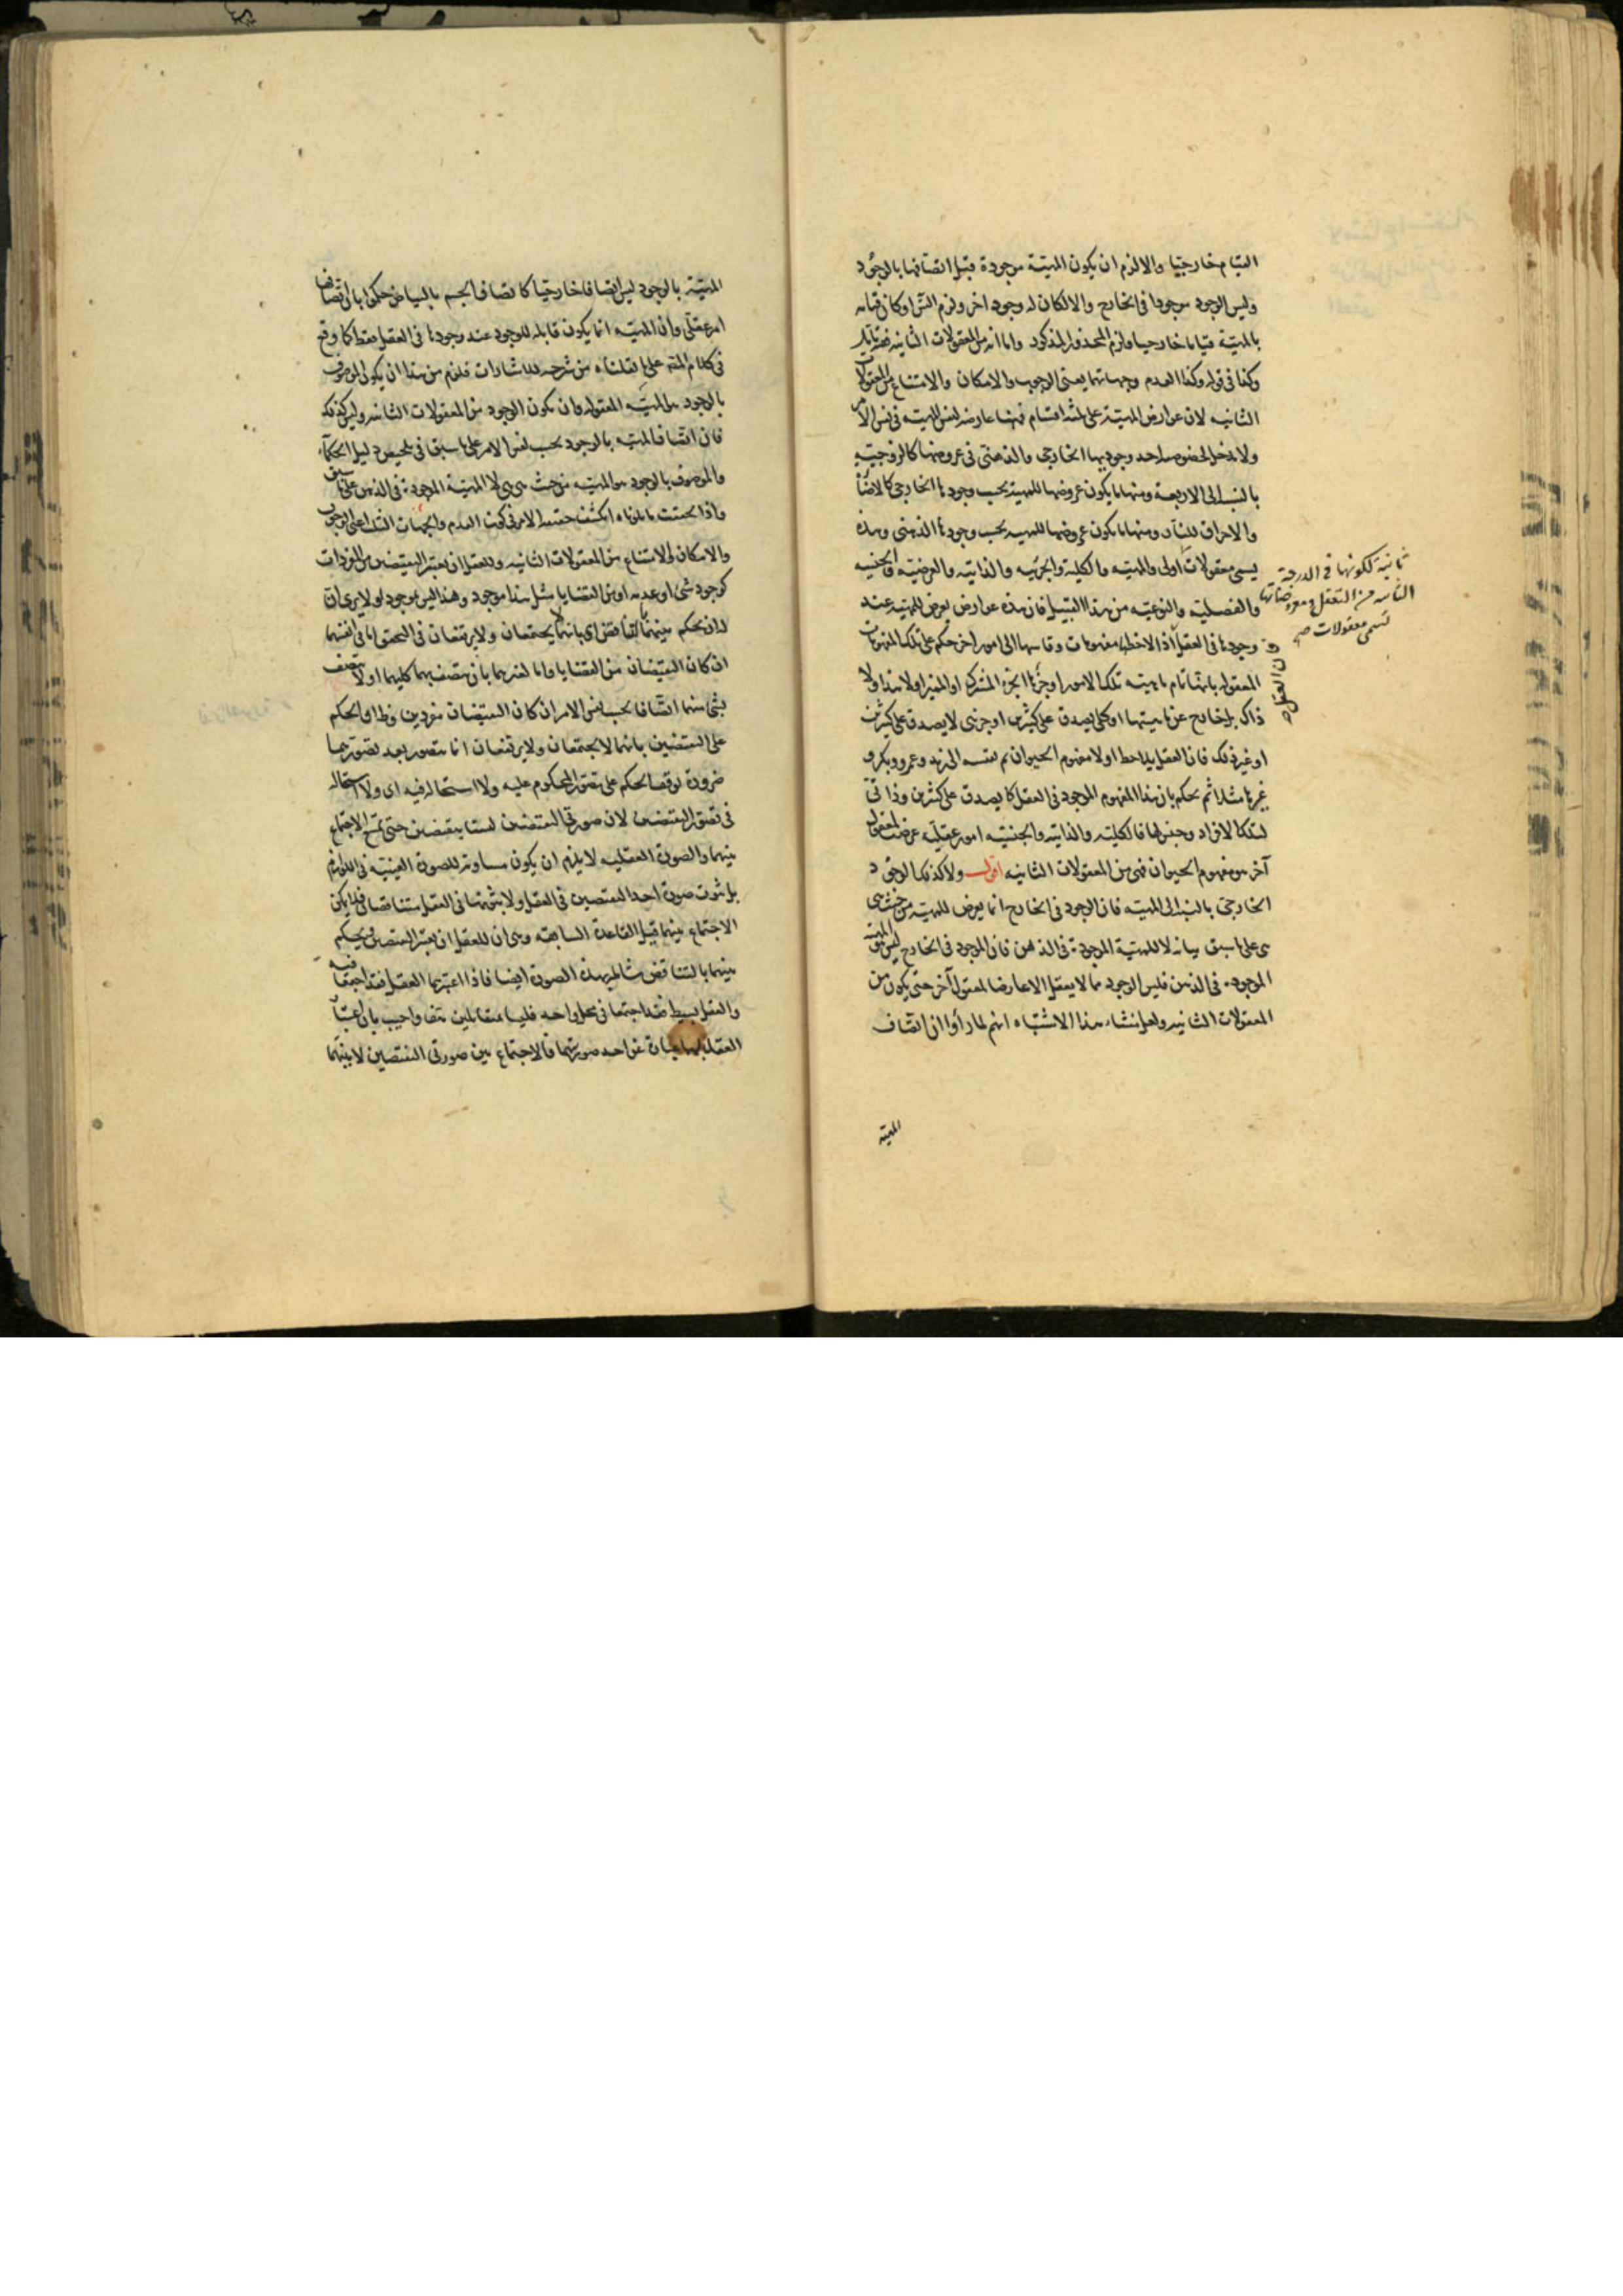 القيام خارجيا والا لزم ان يكون المهية موجودة قبل اتصافها بالوجود
وليس الوجود موجودا في الخارج والا لكان له وجود اخر ولزم التس او كان قيامه
بالمهية قياما خارجيا ولزم المحذور المذكور واما انه من المعقولات الثانيه
وكذا في قوله وكذا العدم وجهاتهما يعنى الوجوب والامكان والامتناع من المعقولات
الثانيه لان عوارض المهية على ثلثة اقسام فمنها عارضه لنفس المهية في نفس الامر
ولا مدخل لخصوص احد وجوديها الخارجى والذهنى في عروضها كالزوجيه
بالنسبه الى الاربعة ومنها ما يكون عروضها للمهية بحسب وجودها الخارجى كالاضاءة
والاحراق للنار ومنها ما يكون عروضها للمهيه بحسب وجودها الذهنى وهذه
يسمى معقولات اولى والمهيه والكلية والجزئيه والذاتيه والعرضيه والجنسيه
والفصلية والنوعيه من هذا القبيل فان هذه عوارض يعرض للمهية عند
وجودها في العقل اذا لاحظها مفهومات وقاسها الى امور اخر حكم على تلك المفهومات
المعقوله بانها تمام ماهيته تلك الامور او جزئها الجزء المشترك او المميز او لا هذا ولا
ذاك بل خارج عن ماهيتها او كلى يصدق على كثيرين او جزئى لا يصدق على كثيرين
او غير ذلك فان العقل يلاحظ اولا مفهوم الحيوان ثم نقسه الى زيد وعمرو وبكر و
غيرها مثلا ثم يحكم بان هذا المفهوم الموجود في العقل كلى يصدق على كثيرين وذاتى
لتلك الافراد وجنس لها فالكليه والذاتيه والجنسيه امور عقليه عرضت لمعقول
آخر هو مفهوم الحيوان فهى من المعقولات الثانيه اقول ولا كذلك الوجود
الخارجى بالنسبه الى المهيه فان الوجود في الخارج انما يعرض للمهيه من حيث هى
هى على ما سبق بيانه لا للمهية الموجودة في الذهن فان الموجود في الخارج ليس هو المهيه
الموجوده في الذهن فليس الوجود مما لا يعقل الا عارضا لمعقول آخر حتى يكون من
المعقولات الثانيه ولعل منشاء هذا الاشتباه انهم لما راوا ان اتصاف
المهية
ثانية لكونها في الدرجة
الثانيه من التعقل ومعروضاتها
تسمى معقولات صح
المهية بالوجود ليس اتصافا خارجيا كاتصاف الجسم بالبياض حكموا بان اتصافها
امر عقلى وان المهيه انما يكون قابله للوجود عند وجودها في العقل فقط كما وقع
في كلام المص على ما نقلناه من شرحه للاشارات فلزم من هذا ان يكون الموصوف
بالوجود هو المهيه المعقوله وان يكون الوجود من المعقولات الثانيه وليس كذلك
فان اتصاف المهيه بالوجود بحسب نفس الامر على ما سبق في تلخيص دليل الحكماء
والموصوف بالوجود هو المهيه من حيث هى هى لا المهية الموجوده في الذهن على ما سبق
واذا تحققت ما تلوناه انكشف حقيقه الامر في كون العدم والجهات الثلث اعنى الوجوب
والامكان والامتناع من المعقولات الثانيه وللعقل ان يعتبر النقيضين من المفردات
كوجود شئ او عدمه او من القضايا مثل هذا موجود وهذا ليس بموجود او لا يرى ان
له ان يحكم بينهما بالتناقض اى بانهما لا يجتمعان ولا يرتفعان في التحقق اما في انفسهما
ان كان النقيضان من القضايا واما لغيرهما بان يتصف بهما كليهما او لا يتصف
بشئ منهما اتصافا بحسب نفس الامر ان كان النقيضان مفردين وهذا الحكم
على النقيضين بانهما لا يجتمعان ولا يرتفعان انما يتصور بعد تصورهما
ضرورة توقف الحكم على تصور المحكوم عليه ولا استحاله فيه اى ولا استحاله
في تصور النقيضين لان صورتى النقيضين ليستا بنقيضين حتى يمتنع الاجتماع
بينهما والصورة العقليه لا يلزم ان يكون مساوية للصورة العينيه في اللوازم
بل ثبوت صورة احد النقيضين في العقل ولا ثبوتها في العقل متناقضان فلا يمكن
الاجتماع بينهما قبل القاعدة السابقه وهى ان للعقل ان يعتبر النقيضين ويحكم
بينهما بالتناقض شامله لهذه الصورة ايضا فاذا اعتبرهما العقل فقد اجتمعا فيه
والعقل بسيط فقد اجتمعا في محل واحد فليسا متقابلين هف واجيب بان اعتبار
العقل عن احد صورتهما فالاجتماع بين صورتى النقيضين لا بينهما